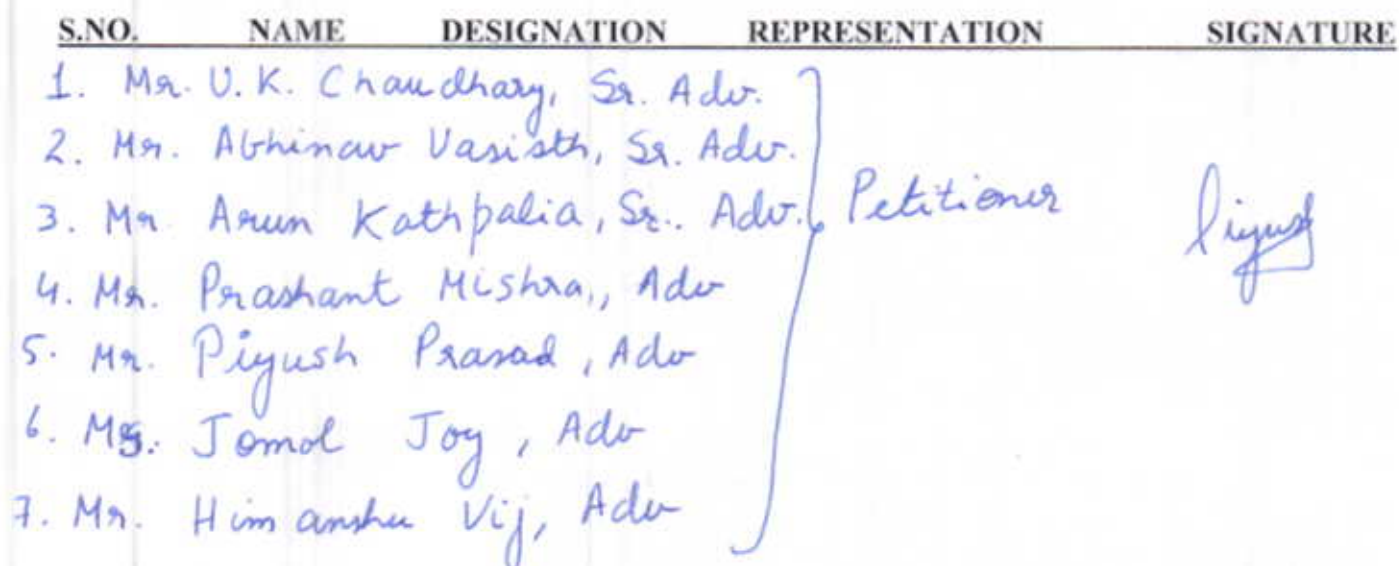 S.NO. NAME DESIGNATION REPRESENTATION SIGNATURE
1. Mr. U.K. Chaudhary, Sr. Adv.
2. Mr. Abhinav Vasisth, Sr. Adv.
3. Mr Arun Kathpalia, Sr.. Adv. Petitioner Piyush
4. Mr. Prashant Mishra,, Adv
5. Mr. Piyush Prasad, Adv
6. Ms. Jomol Joy, Adv
7. Mr. Himanshu Vij, Adv